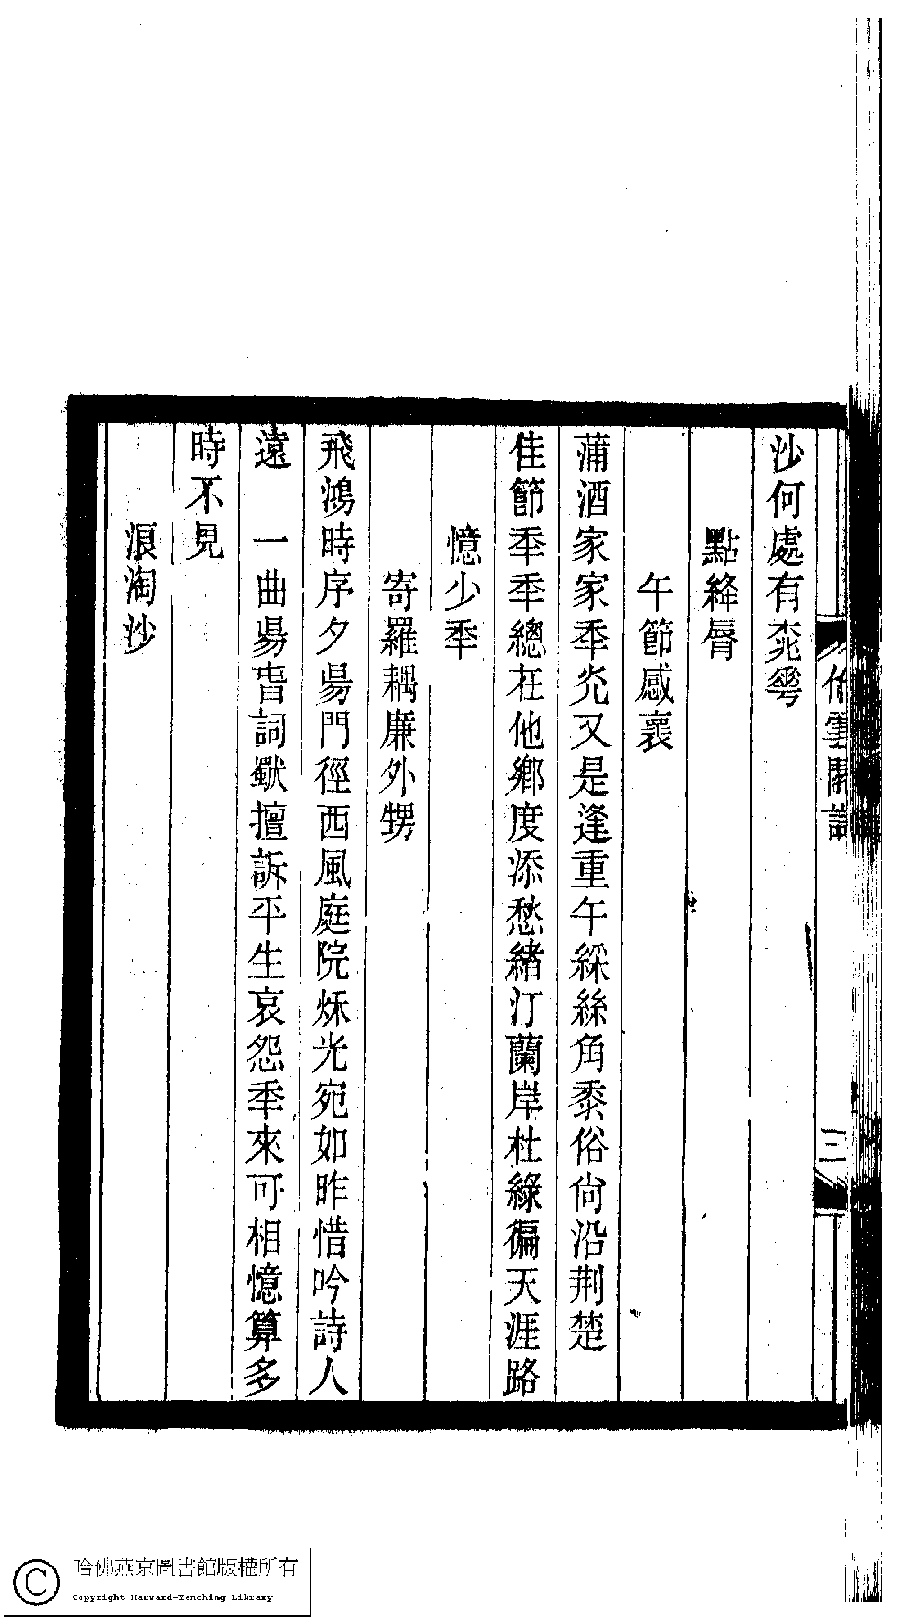 沙何處有桒蕚
點絳脣
午節感褱
蒲酒家家秊灮又是逢重午綵絲角黍俗尙沿荆楚
佳節秊秊總在他鄉度添愁緒汀蘭岸杜綠徧天涯路
憶少秊
寄羅耦廉外甥
飛鴻時序夕昜門徑西風庭院烁光宛如昨惜吟詩人
遠　一曲昜春詞獻擅訴平生哀怨秊來可相憶算多
時不見
浪淘沙
三
哈佛燕京圖書館版權所有
Copyright Harvard-Yenching Library